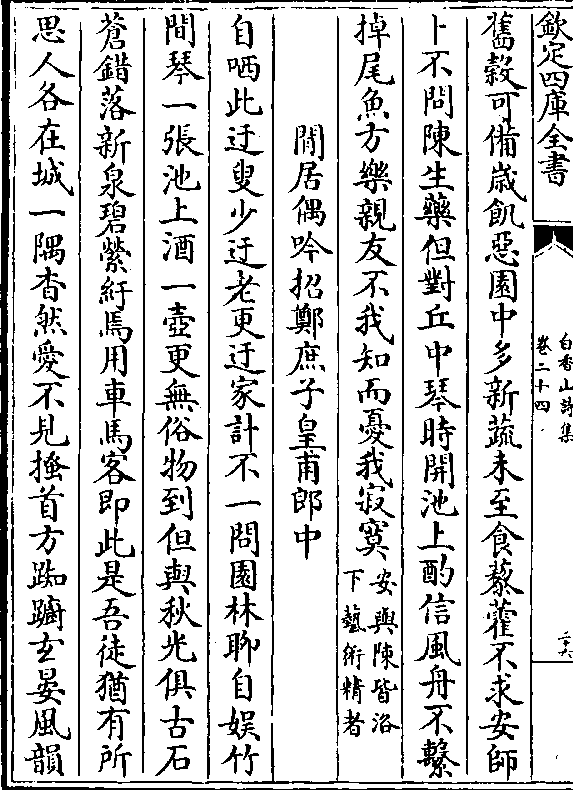 欽定四庫全書
白香山詩集
卷二十四
二六
舊穀可備歳飢惡園中多新蔬未至食藜藿不求安師
卜不問陳生藥但對丘中琴時開池上酌信風舟不繫
掉尾魚方樂親友不我知而憂我寂寞
安與陳皆洛
下藝術精者
閒居偶吟招鄭庶子皇甫郎中
自哂此迂叟少迂老更迂家計不一問園林聊自娱竹
間琴一張池上酒一壺更無俗物到但與秋光俱古石
蒼錯落新泉碧縈紆馬用車馬客即此是吾徒猶有所
思人各在城一隅杳然愛不見搔首方踟躕玄晏風韻